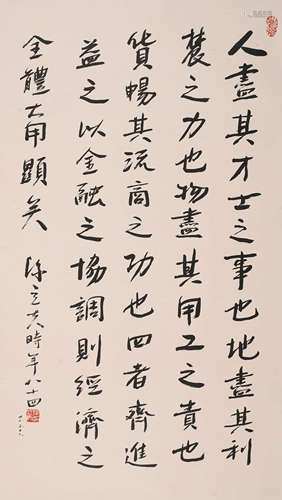 人盡其才士之事也地盡其利
農之力也物盡其用工之責也
貨暢其流商之功也四者齊進
益之以金融之協調則經濟之
全體大用顯矣
陳立夫時年八十四